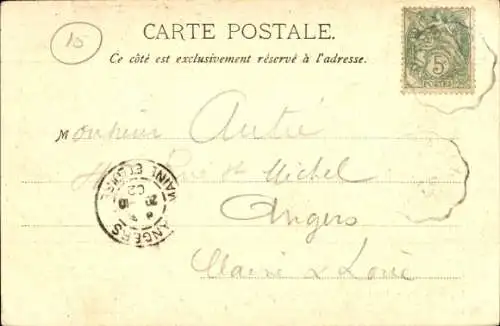 15
CARTE POSTALE.
Ce côté est exclusivement réservé à l'adresse.
5
Monsieur Autié
St Michel
Angers
Maine & Loire
ANGERS
MAINE ET LOIRE
02